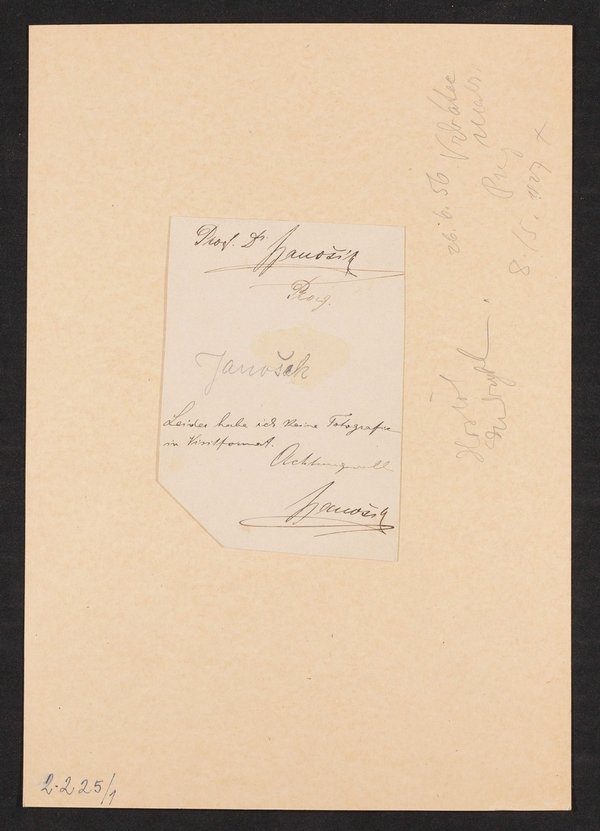 Prof. Dr Janošík
Prag.
Janošek
Leider habe ich keine Fotografie
in Visitformat.
Achtungsvoll
Janošík
26. 6. 56
8. /5. 1927 x
2.225/1